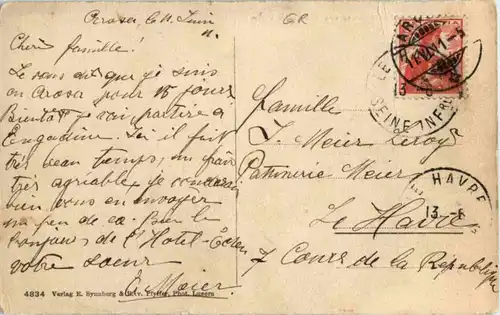 Arosa le 11 Juin
GR
11.
Chère famille!
Je vous dit que je suis
en Arosa pour 15 jours
Bientôt je vai partire à
Engadine. Ici il fait
très beau temps, un
très agréable, je
bien vous en envoyer
un peu de ca. Bien le
bonjour de l'Hotel-Eden
votre soeur
Meier
4834 Verlag E. Synnberg & Rüv. Pfyffer, Phot. Luzern
famille
J. Meier Leroy
Patinerie Meier
Le Havre
7 Cours de la République
LE HAVRE
SEINE INFRE
HAVRE
13 - 6